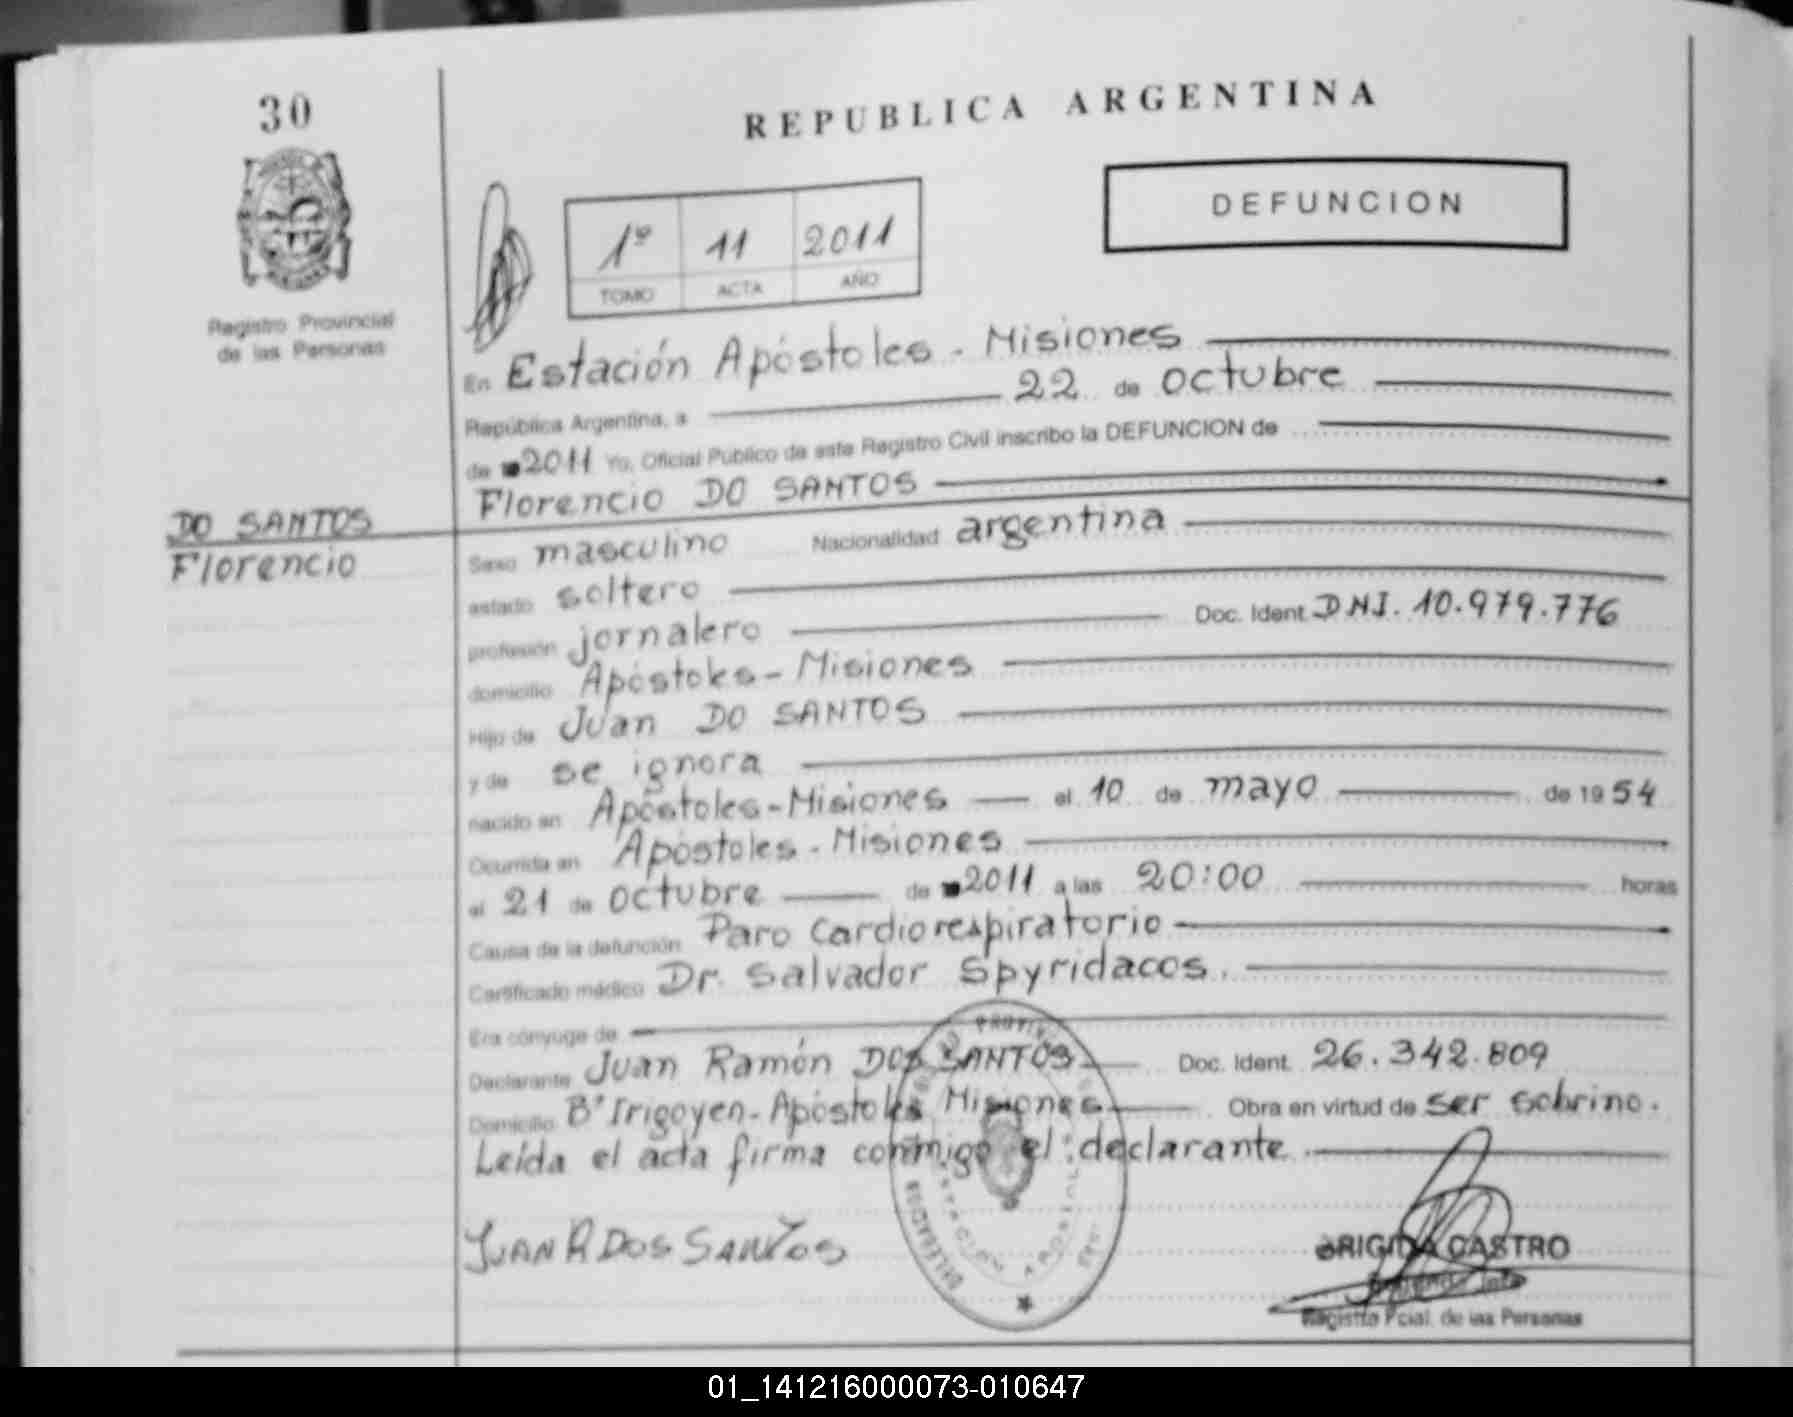 30
REPUBLICA ARGENTINA
DEFUNCION
1º 11 2011
TOMO ACTA AÑO
Registro Provincial
de las Personas
En Estación Apóstoles - Misiones
República Argentina, a 22 de octubre
de 2011 Yo, Oficial Público de este Registro Civil inscribo la DEFUNCION de
Florencio DO SANTOS
DO SANTOS
Florencio
Sexo masculino Nacionalidad argentina
estado soltero
profesión jornalero Doc. Ident. DNI. 10.979.776
domicilio Apóstoles - Misiones
Hijo de Juan DO SANTOS
y de se ignora
nacido en Apóstoles - Misiones el 10 de mayo de 1954
Ocurrida en Apóstoles - Misiones
el 21 de octubre de 2011 a las 20:00 horas
Causa de la defunción Paro Cardiorespiratorio
Certificado médico Dr. Salvador Spyridacos.
Era cónyuge de
Declarante Juan Ramón DOS SANTOS Doc. Ident. 26.342.809
Domicilio Bº Irigoyen - Apóstoles Misiones Obra en virtud de ser sobrino.
Leída el acta firma conmigo el declarante
JUAN R DOS SANTOS
DELEGACION
BRIGIDA CASTRO
Registro Pcial. de las Personas
01_141216000073-010647